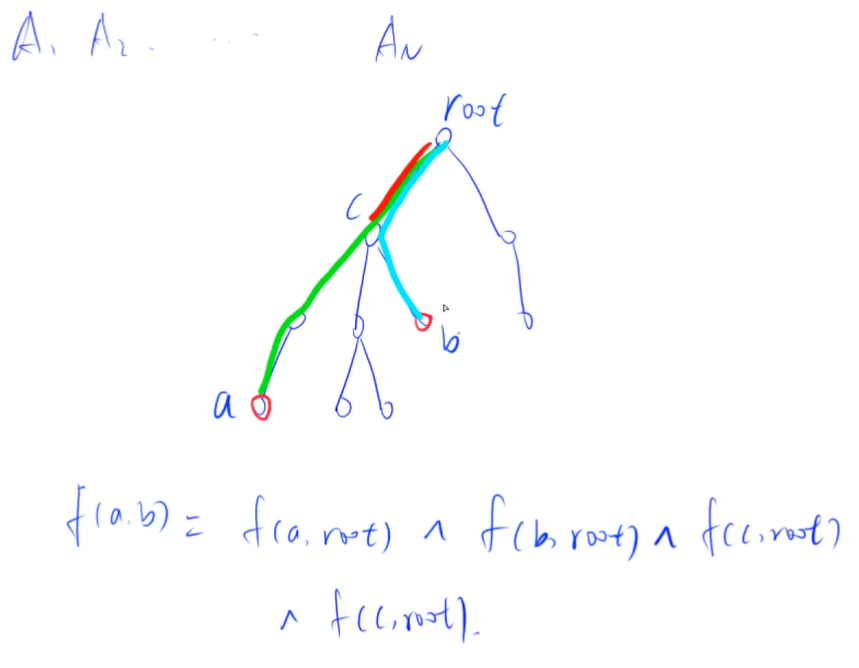 A₁ A₂ . ... A_N
root
c
b
a
f(a,b) = f(a, root) ∧ f(b, root) ∧ f(c, root)
∧ f(c, root).